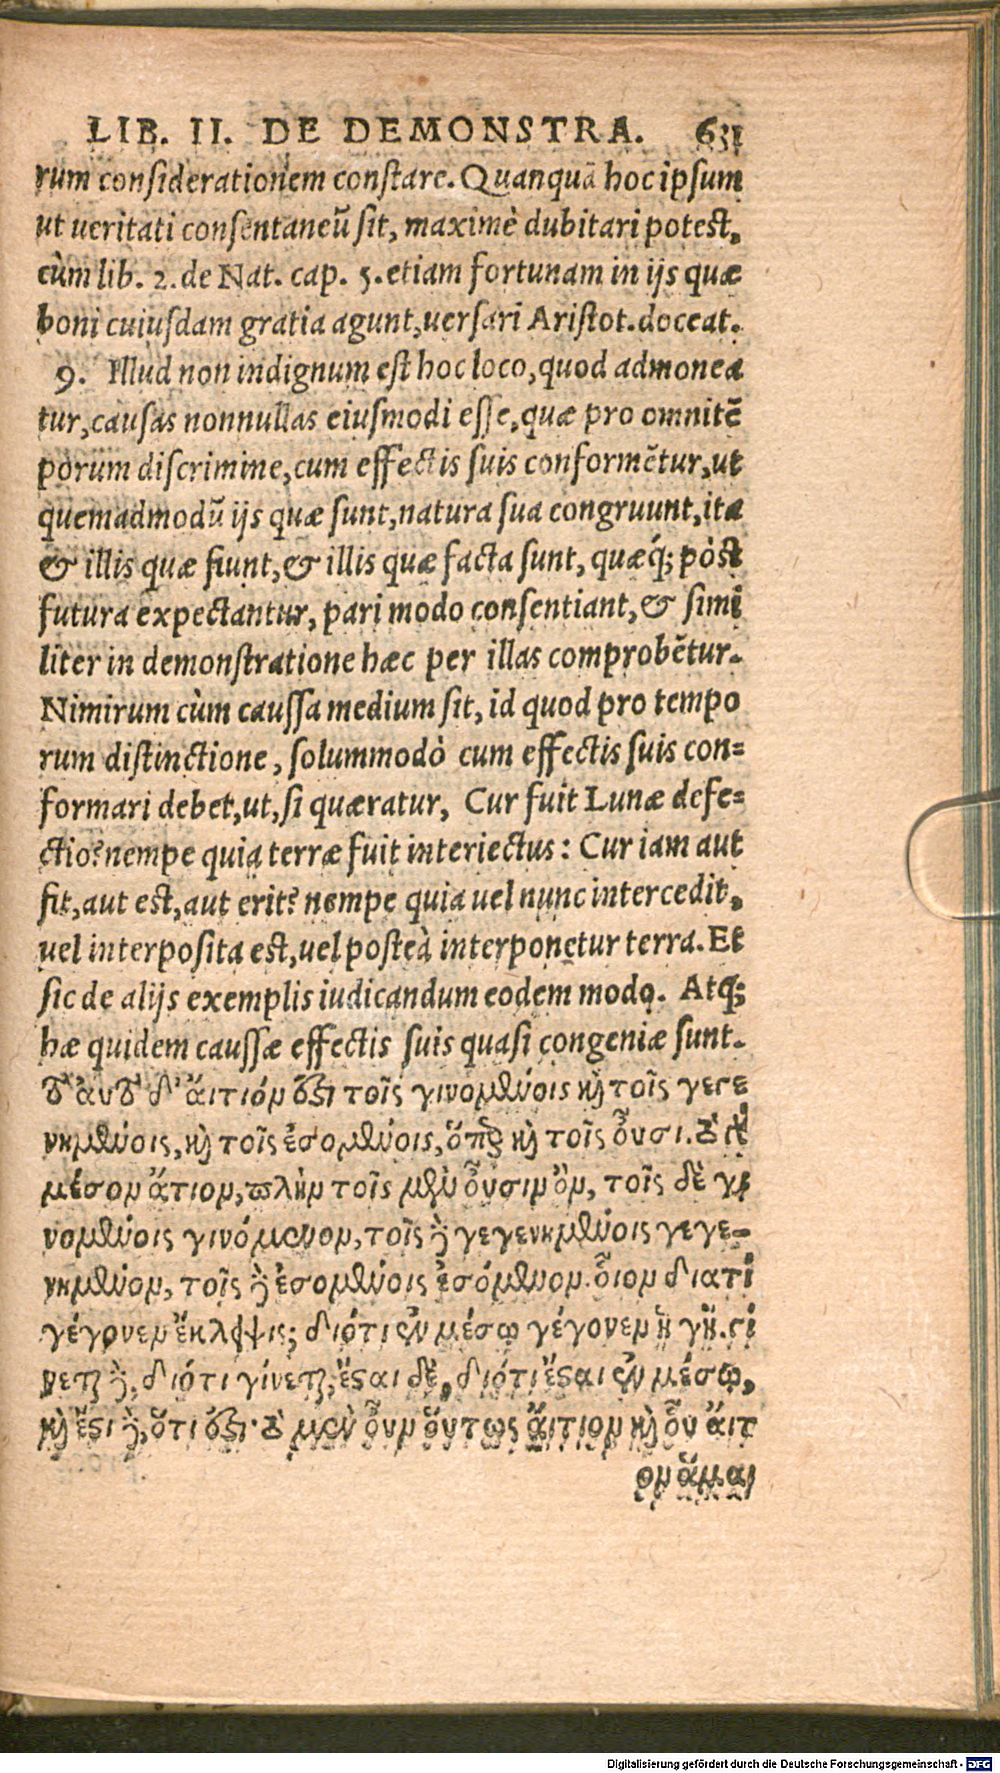 LIB. II. DE DEMONSTRA. 631
rum considerationem constare. Quanquā hoc ipsum
ut ueritati consentaneū sit, maximè dubitari potest,
cùm lib. 2. de Nat. cap. 5. etiam fortunam in ijs quæ
boni cuiusdam gratia agunt, uersari Aristot. doceat.
9. Illud non indignum est hoc loco, quod admonea
tur, causas nonnullas eiusmodi esse, quæ pro omnitē
porum discrimine, cum effectis suis conformētur, ut
quemadmodū ijs quæ sunt, natura sua congruunt, ita
& illis quæ fiunt, & illis quæ facta sunt, quæq́; pòst
futura expectantur, pari modo consentiant, & simi
liter in demonstratione hæc per illas comprobētur.
Nimirum cùm caussa medium sit, id quod pro tempo
rum distinctione, solummodò cum effectis suis con=
formari debet, ut, si quæratur, Cur fuit Lunæ defe=
ctio? nempe quia terræ fuit interiectus: Cur iam aut
fit, aut est, aut erit? nempe quia uel nunc intercedit,
uel interposita est, uel posteà interponetur terra. Et
sic de alijs exemplis iudicandum eodem modo. Atq́;
hæ quidem caussæ effectis suis quasi congeniæ sunt.
τὸ αὐτὸ δ' ἄιτιόν ὅξι τοῖς γινομένοις καὶ τοῖς γεγε
νημένοις, καὶ τοῖς ἐσομένοις, ὅπερ καὶ τοῖς οὖσι. τὸ γὰρ
μέσον ἄτιον, πλὴν τοῖς μὲν οὖσιν ὂν, τοῖς δὲ γι
νομένοις γινόμενον, τοῖς δὲ γεγενημένοις γεγε-
νημένον, τοῖς δὲ ἐσομένοις ἐσόμενον. οἷον διατί
γέγονεν ἔκλειψις; διότι ἐν μέσῳ γέγονεν ἡ γῆ. γί
νεται δὲ, διότι γίνεται, ἔσται δὲ, διότι ἔσται ἐν μέσῳ,
καὶ ἔστι δὲ, ὅτι ἐστι· τὸ μὲν οὖν οὕτως ἄιτιον καὶ οὗ ἄιτ
ον ἅμα
Digitalisierung gefördert durch die Deutsche Forschungsgemeinschaft - DFG